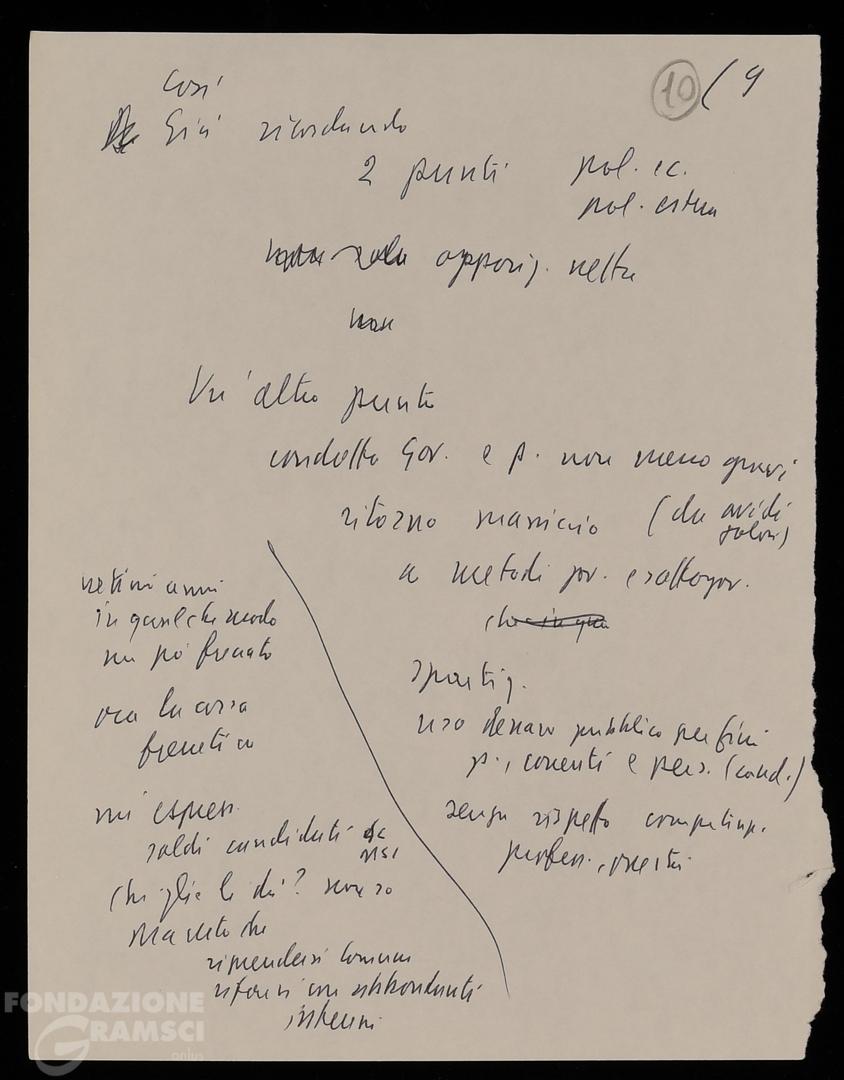 10 ( 9
Così
Già ricordando
2 punti pol. ec.
pol. estera
opposiz. netta
Un'altro punto
condotta Gov. e p. non meno gravi
ritorno massiccio (da avidi
a metodi gov. e sottogov.
che in
spartiz.
uso denaro pubblico per fini
p., correnti e pers. (cand.)
senza rispetto competenz.
profess., onestà
negli anni
in qualche modo
un pò frenato
ora la corsa
frenetica
mi
soldi candidati
Chi glie le dà?
Ma certo che
riprendersi
rifarsi con abbondanti
interessi
FONDAZIONE
GRAMSCI
onlus